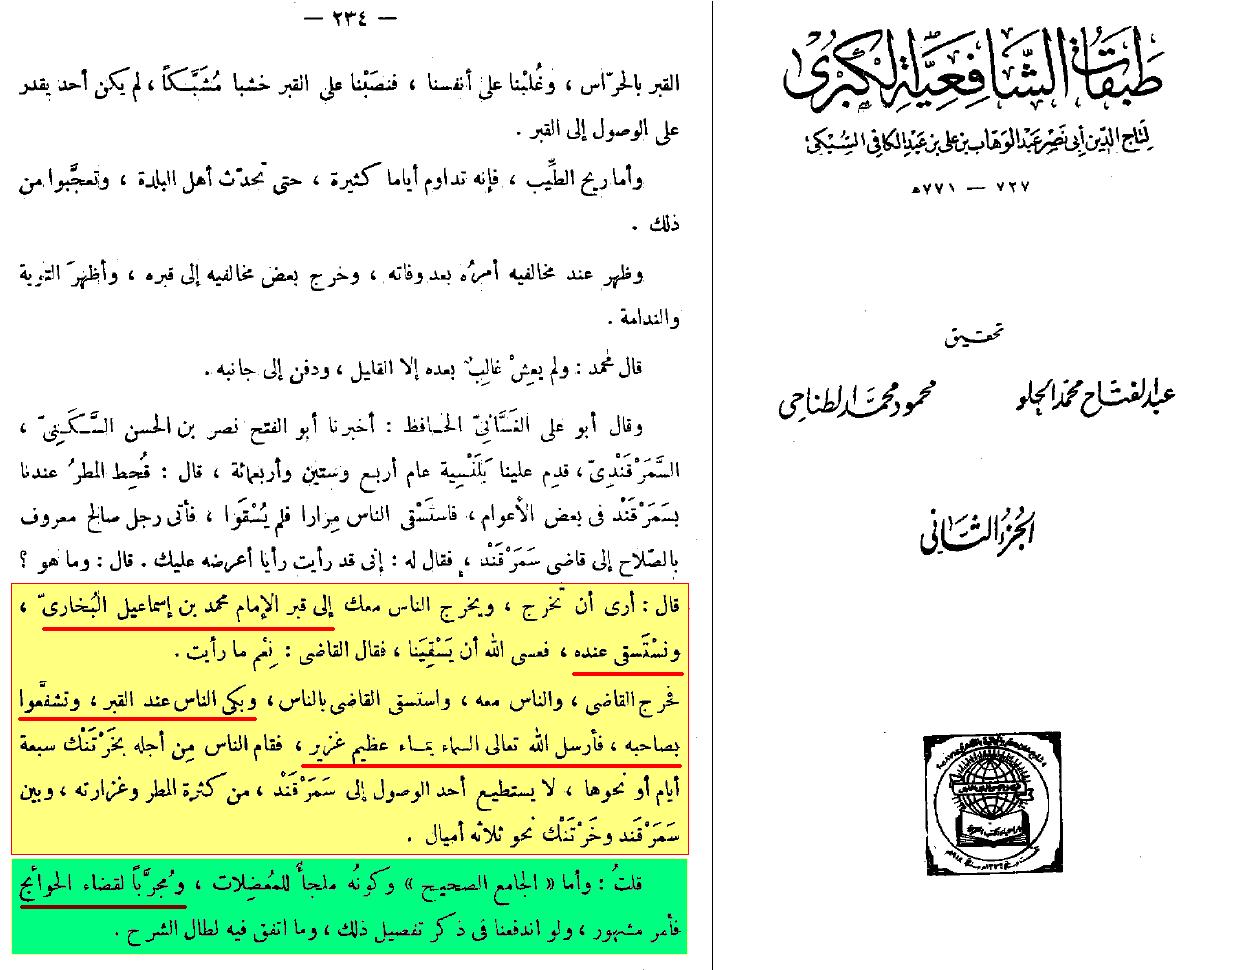 — ٢٣٤ —
القبر بالحرّاس ، وغُلبْنا على أنفسنا ، فنصَبْنا على القبر خشبا مُشَبَّكاً ، لم يكن أحد يقدر
على الوصول إلى القبر .
وأما ريح الطِّيب ، فإنه تداوم أياما كثيرة ، حتى تحدّث أهل البلدة ، وتعجَّبوا من
ذلك .
وظهر عند مخالفيه أمرُه بعد وفاته ، وخرج بعض مخالفيه إلى قبره ، وأظهرَ التوبة
والندامة .
قال محمد : ولم يعِشْ غالبٌ بعده إلا القليل ، ودفن إلى جانبه .
وقال أبو على الغَسَّانِىّ الحافظ : أخبرنا أبو الفتح نصر بن الحسن السَّكَنِىّ ،
السَّمَرْقَنْدِىّ ، قدِم علينا بَلَنْسِية عام أربع وستين وأربعمائة ، قال : قُحِط المطرُ عندنا
بسَمَرْقَنْد فى بعض الأعوام ، فاستَسْقى الناس مِرارا فلم يُسْقَوا ، فأتى رجل صالح معروف
بالصّلاح إلى قاضى سَمَرْقَنْد ، فقال له : إنى قد رأيت رأيا أعرضه عليك . قال : وما هو ؟
قال : أرى أن تخرج ، ويخرج الناس معك إلى قبر الإمام محمد بن إسماعيل البُخارىّ ،
ونسْتَسقى عنده ، فعسى الله أن يَسْقِيَنا ، فقال القاضى : نِعْم ما رأيت .
فخرج القاضى ، والناس معه ، واستسقى القاضى بالناس ، وبكى الناس عند القبر ، وتشفَّعوا
بصاحبه ، فأرسل الله تعالى السماء بماء عظيم غزير ، فقام الناس مِن أجله بخَرْتَنْك سبعة
أيام أو نحوها ، لا يستطيع أحد الوصول إلى سَمَرْقَنْد ، من كثرة المطر وغزارته ، وبين
سَمَرْقَند وخَرْتَنْك نحو ثلاثه أميال .
قلتُ : وأما « الجامع الصحيح » وكونُه ملجأً للمُعضِلات ، ومُجرَّباً لقضاء الحوائج
فأمر مشهور ، ولو اندفعنا فى ذكر تفصيل ذلك ، وما اتفق فيه لطال الشرح .
طبقات الشافعية الكبرى
لتاج الدين أبى نصر عبد الوهاب بن على بن عبد الكافى السبكى
٧٢٧ — ٧٧١ هـ
تحقيق
عبد الفتاح محمد الحلو
محمود محمد الطناحى
الجزء الثانى